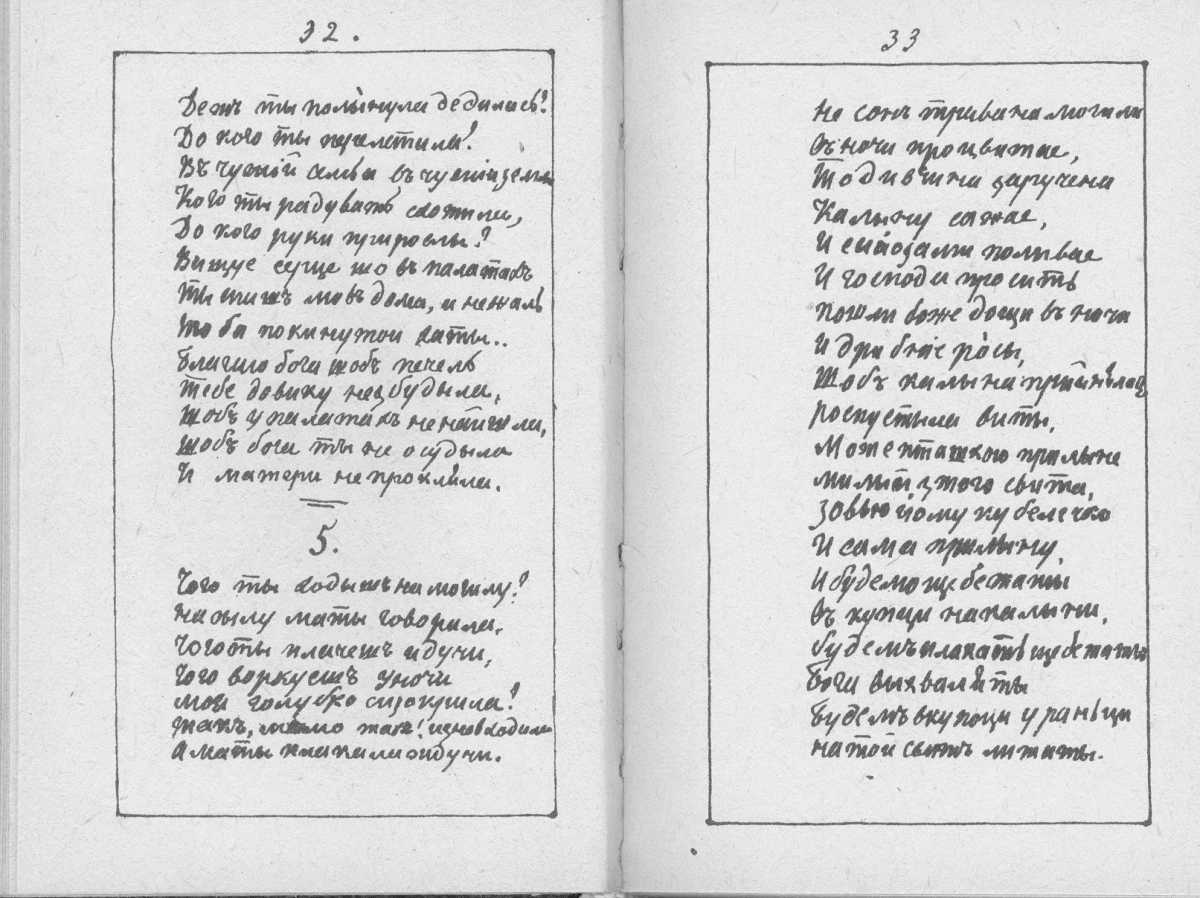 32.
Дежъ ты полынула деділась?
До кого ты прелетила?
Въ чужій семьи въ чужій земли
Кого ты радуватъ схотила,
До кого руки приросмы?
Вищує серце що въ палатахъ
ты спишъ мовъ дома, и нежаль
тоби покинутои хаты..
Благаю бога щобъ печель
тебе довику незбудыла,
щобъ у палатахъ ненайшла,
щобъ бога ты не осудыла
И матери непрокляла.
5.
Чого ты ходышъ на могилу?
насылу маты говорила,
чого ты плачешъ идучи,
Чого воркуешъ уночи
моя голубко сизокрила?
такъ, мамо такъ! изновходила
а маты плакала ждучи.
33
не сонъ трава на могили
въночи процвитае,
то дивчина заручена
Калыну сажае,
И слёзами поливае
И господа проситъ
пошли боже дощи въ ночи
И дрибніе росы,
Щобъ калына принялась
роспустыла виты,
може пташкою прилыне
милый зтого свита,
зовью йому кубелечко
И сама прилыну,
И будемо щебетаты
въ купци накалыни,
будемъ плакать щебетать
Бога выхваляты
Будемъ вкупоци ураньци
на той свитъ литаты.